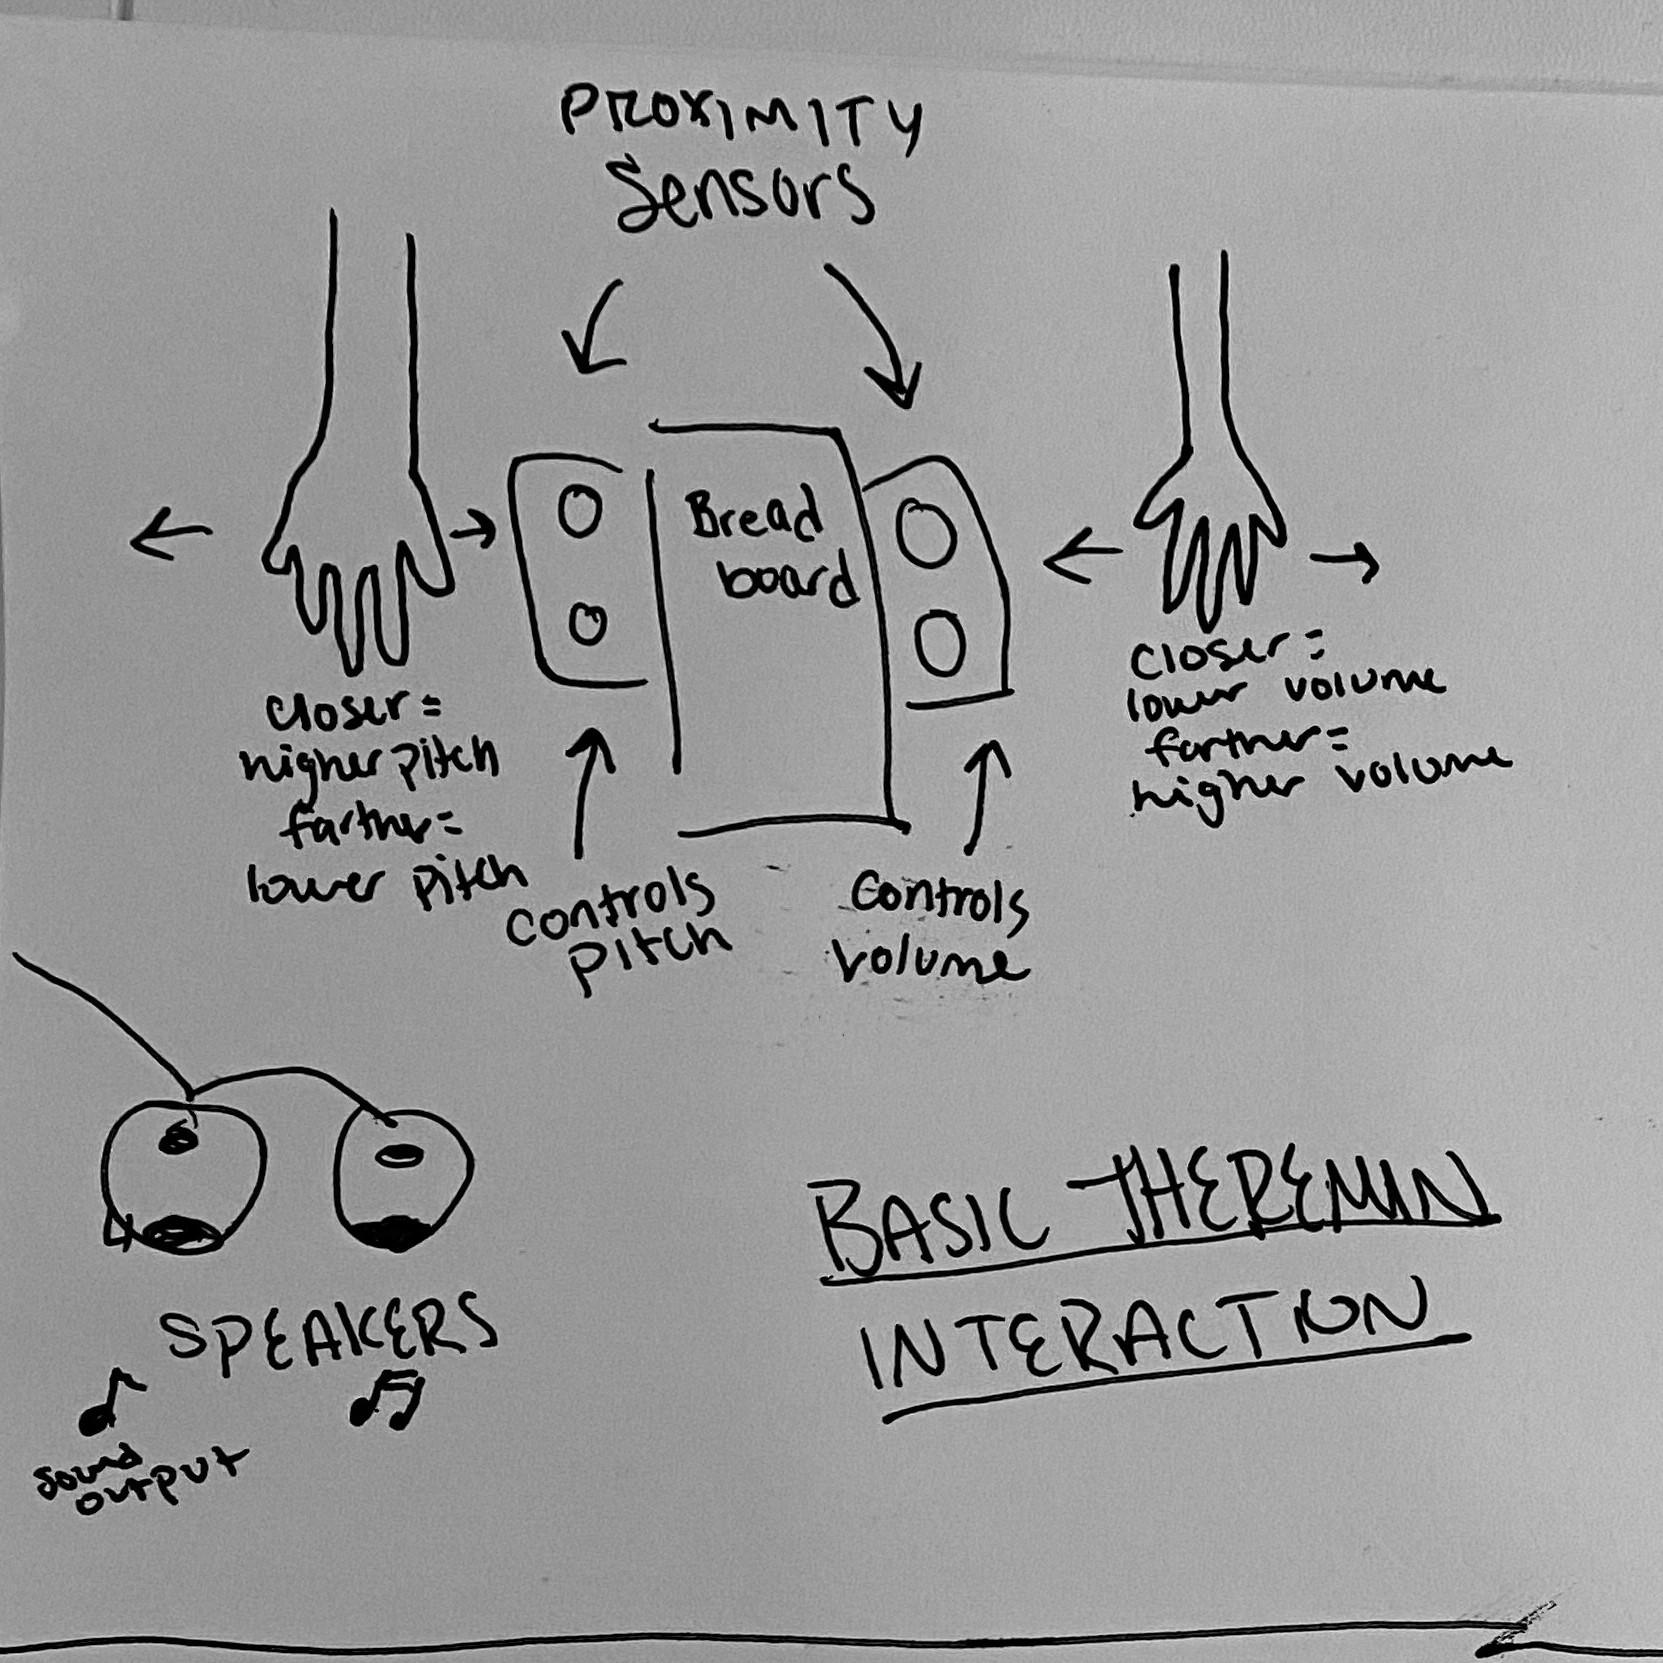 PROXIMITY
Sensors
Bread
board
closer =
higher pitch
farther =
lower pitch
controls
pitch
controls
volume
closer =
lower volume
farther =
higher volume
SPEAKERS
sound
output
BASIC THEREMIN
INTERACTION